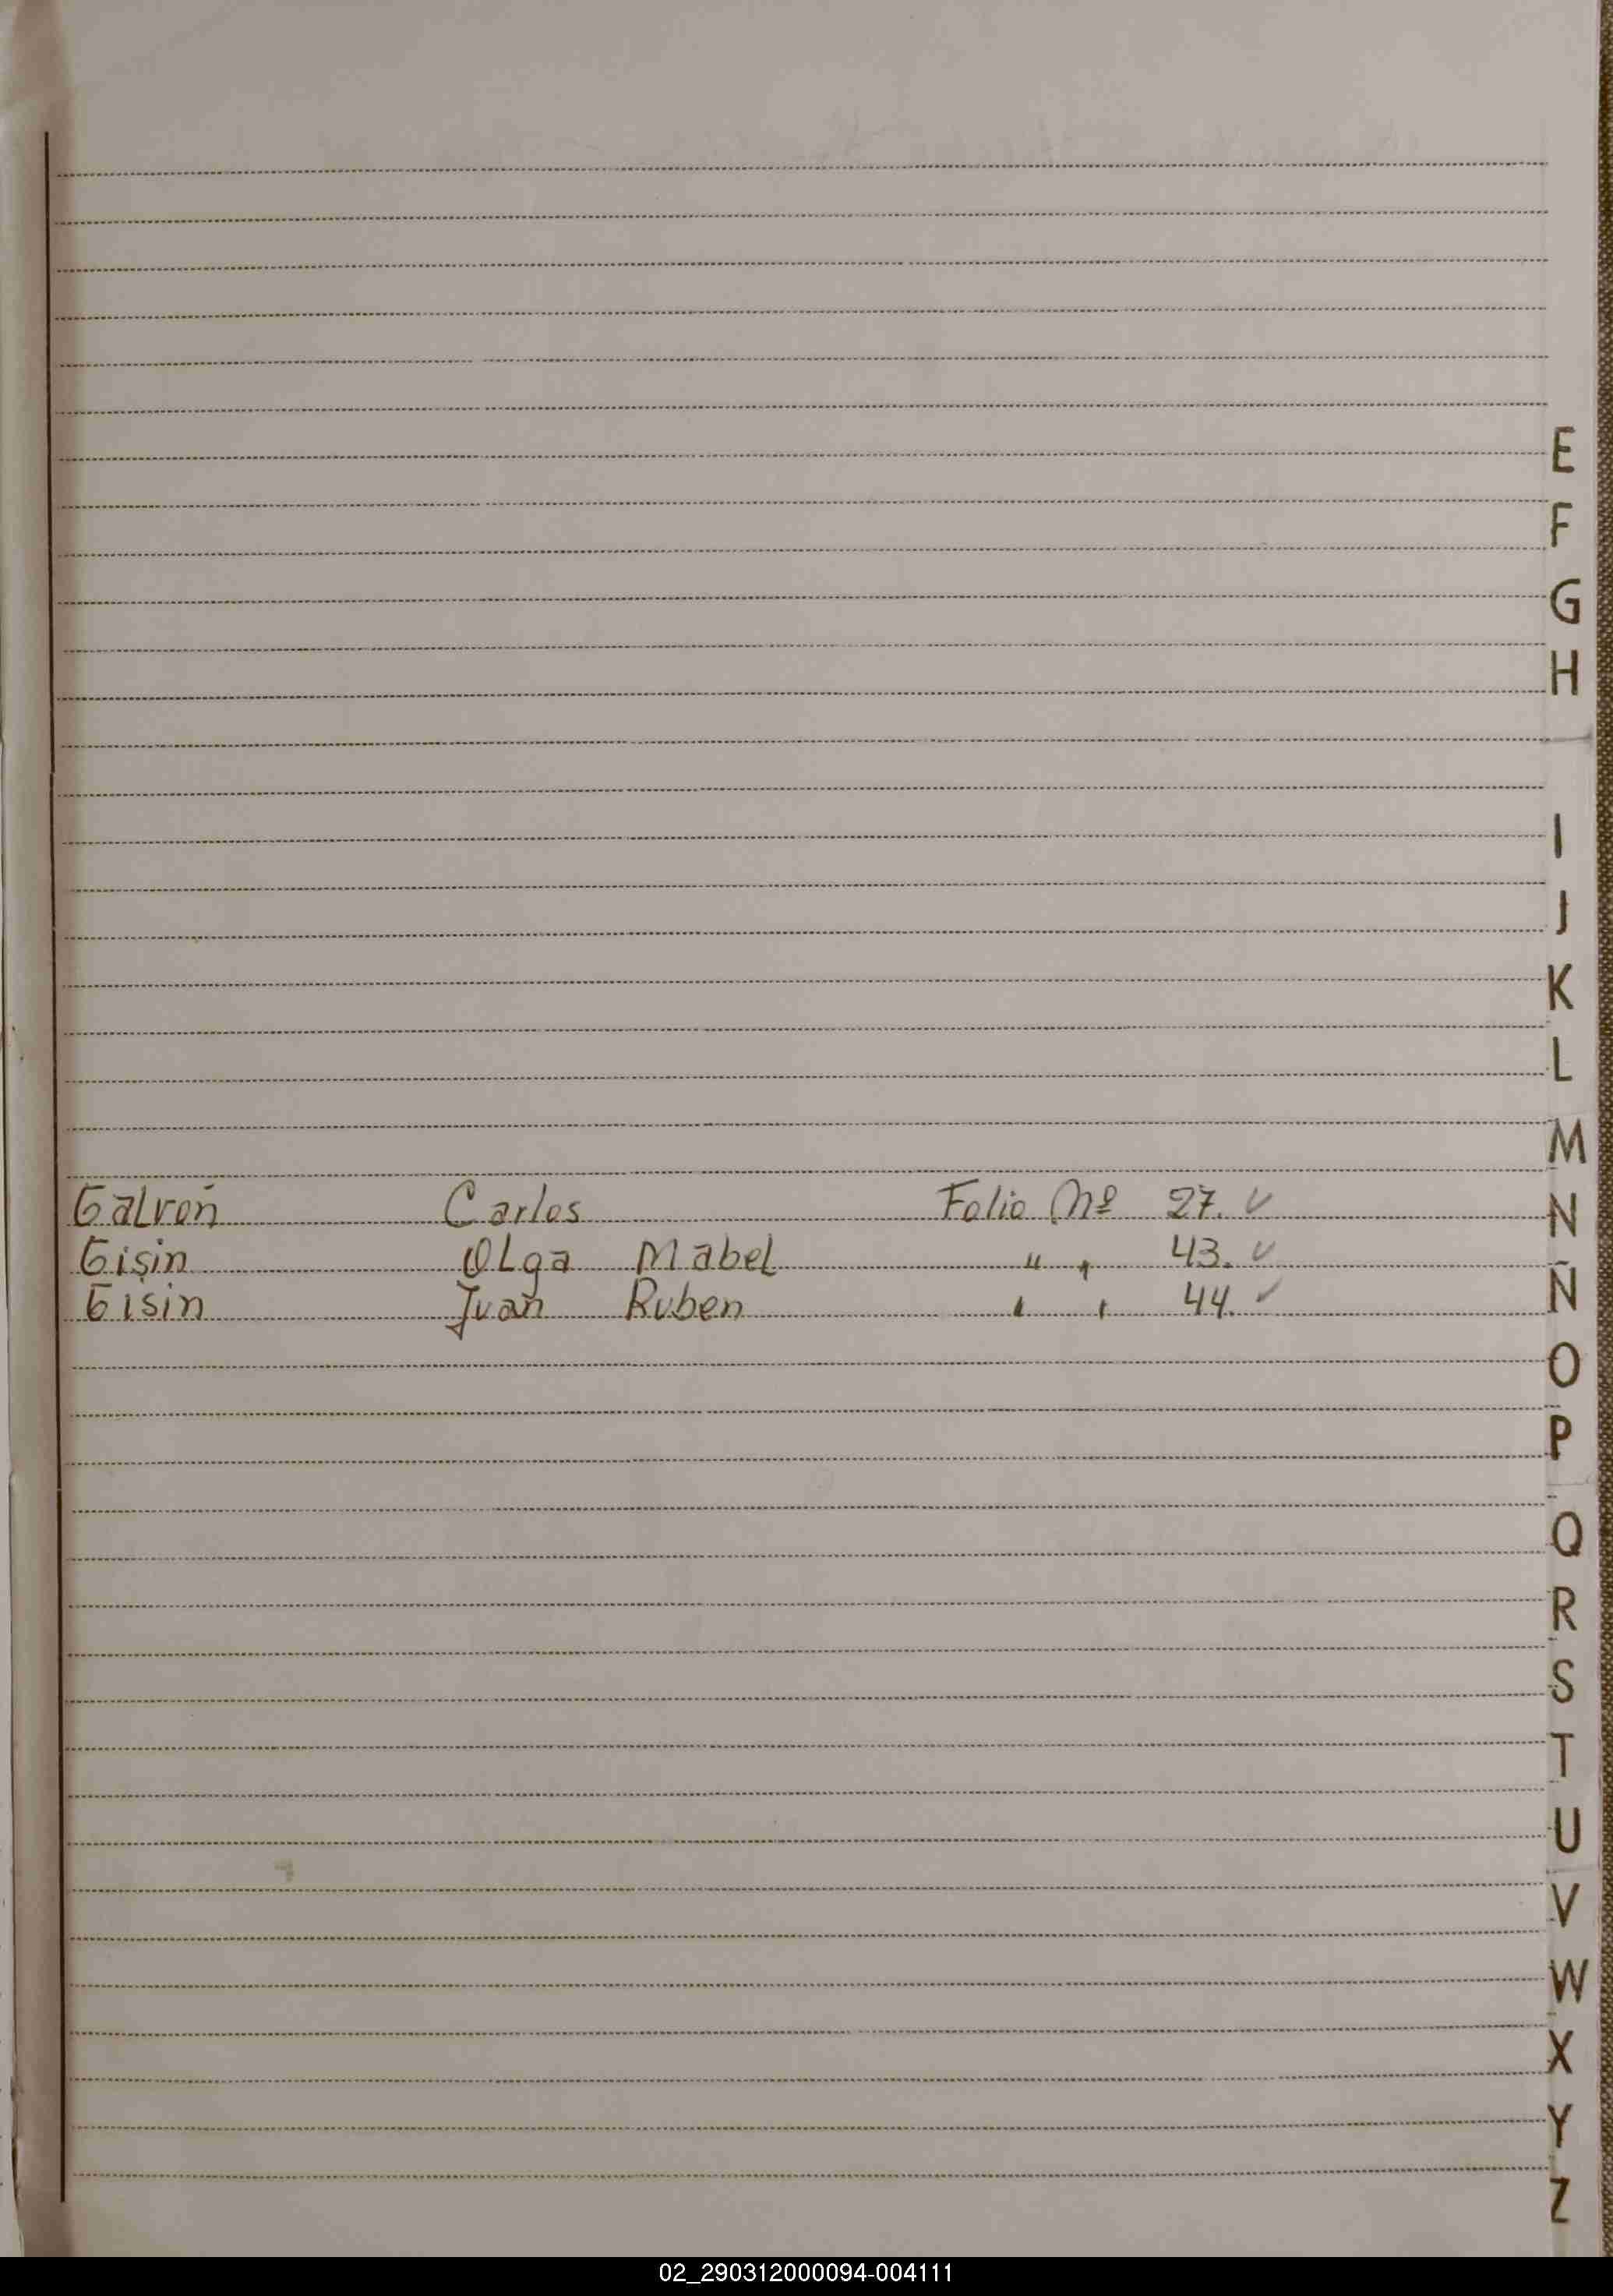 E
F
G
H
I
J
K
L
M
Galvón Carlos Folio Nº 27. ✓
N
Gisin Olga Mabel " " 43. ✓
Gisin Juan Ruben " " 44. ✓
Ñ
O
P
Q
R
S
T
U
V
W
X
Y
Z
02_290312000094-004111